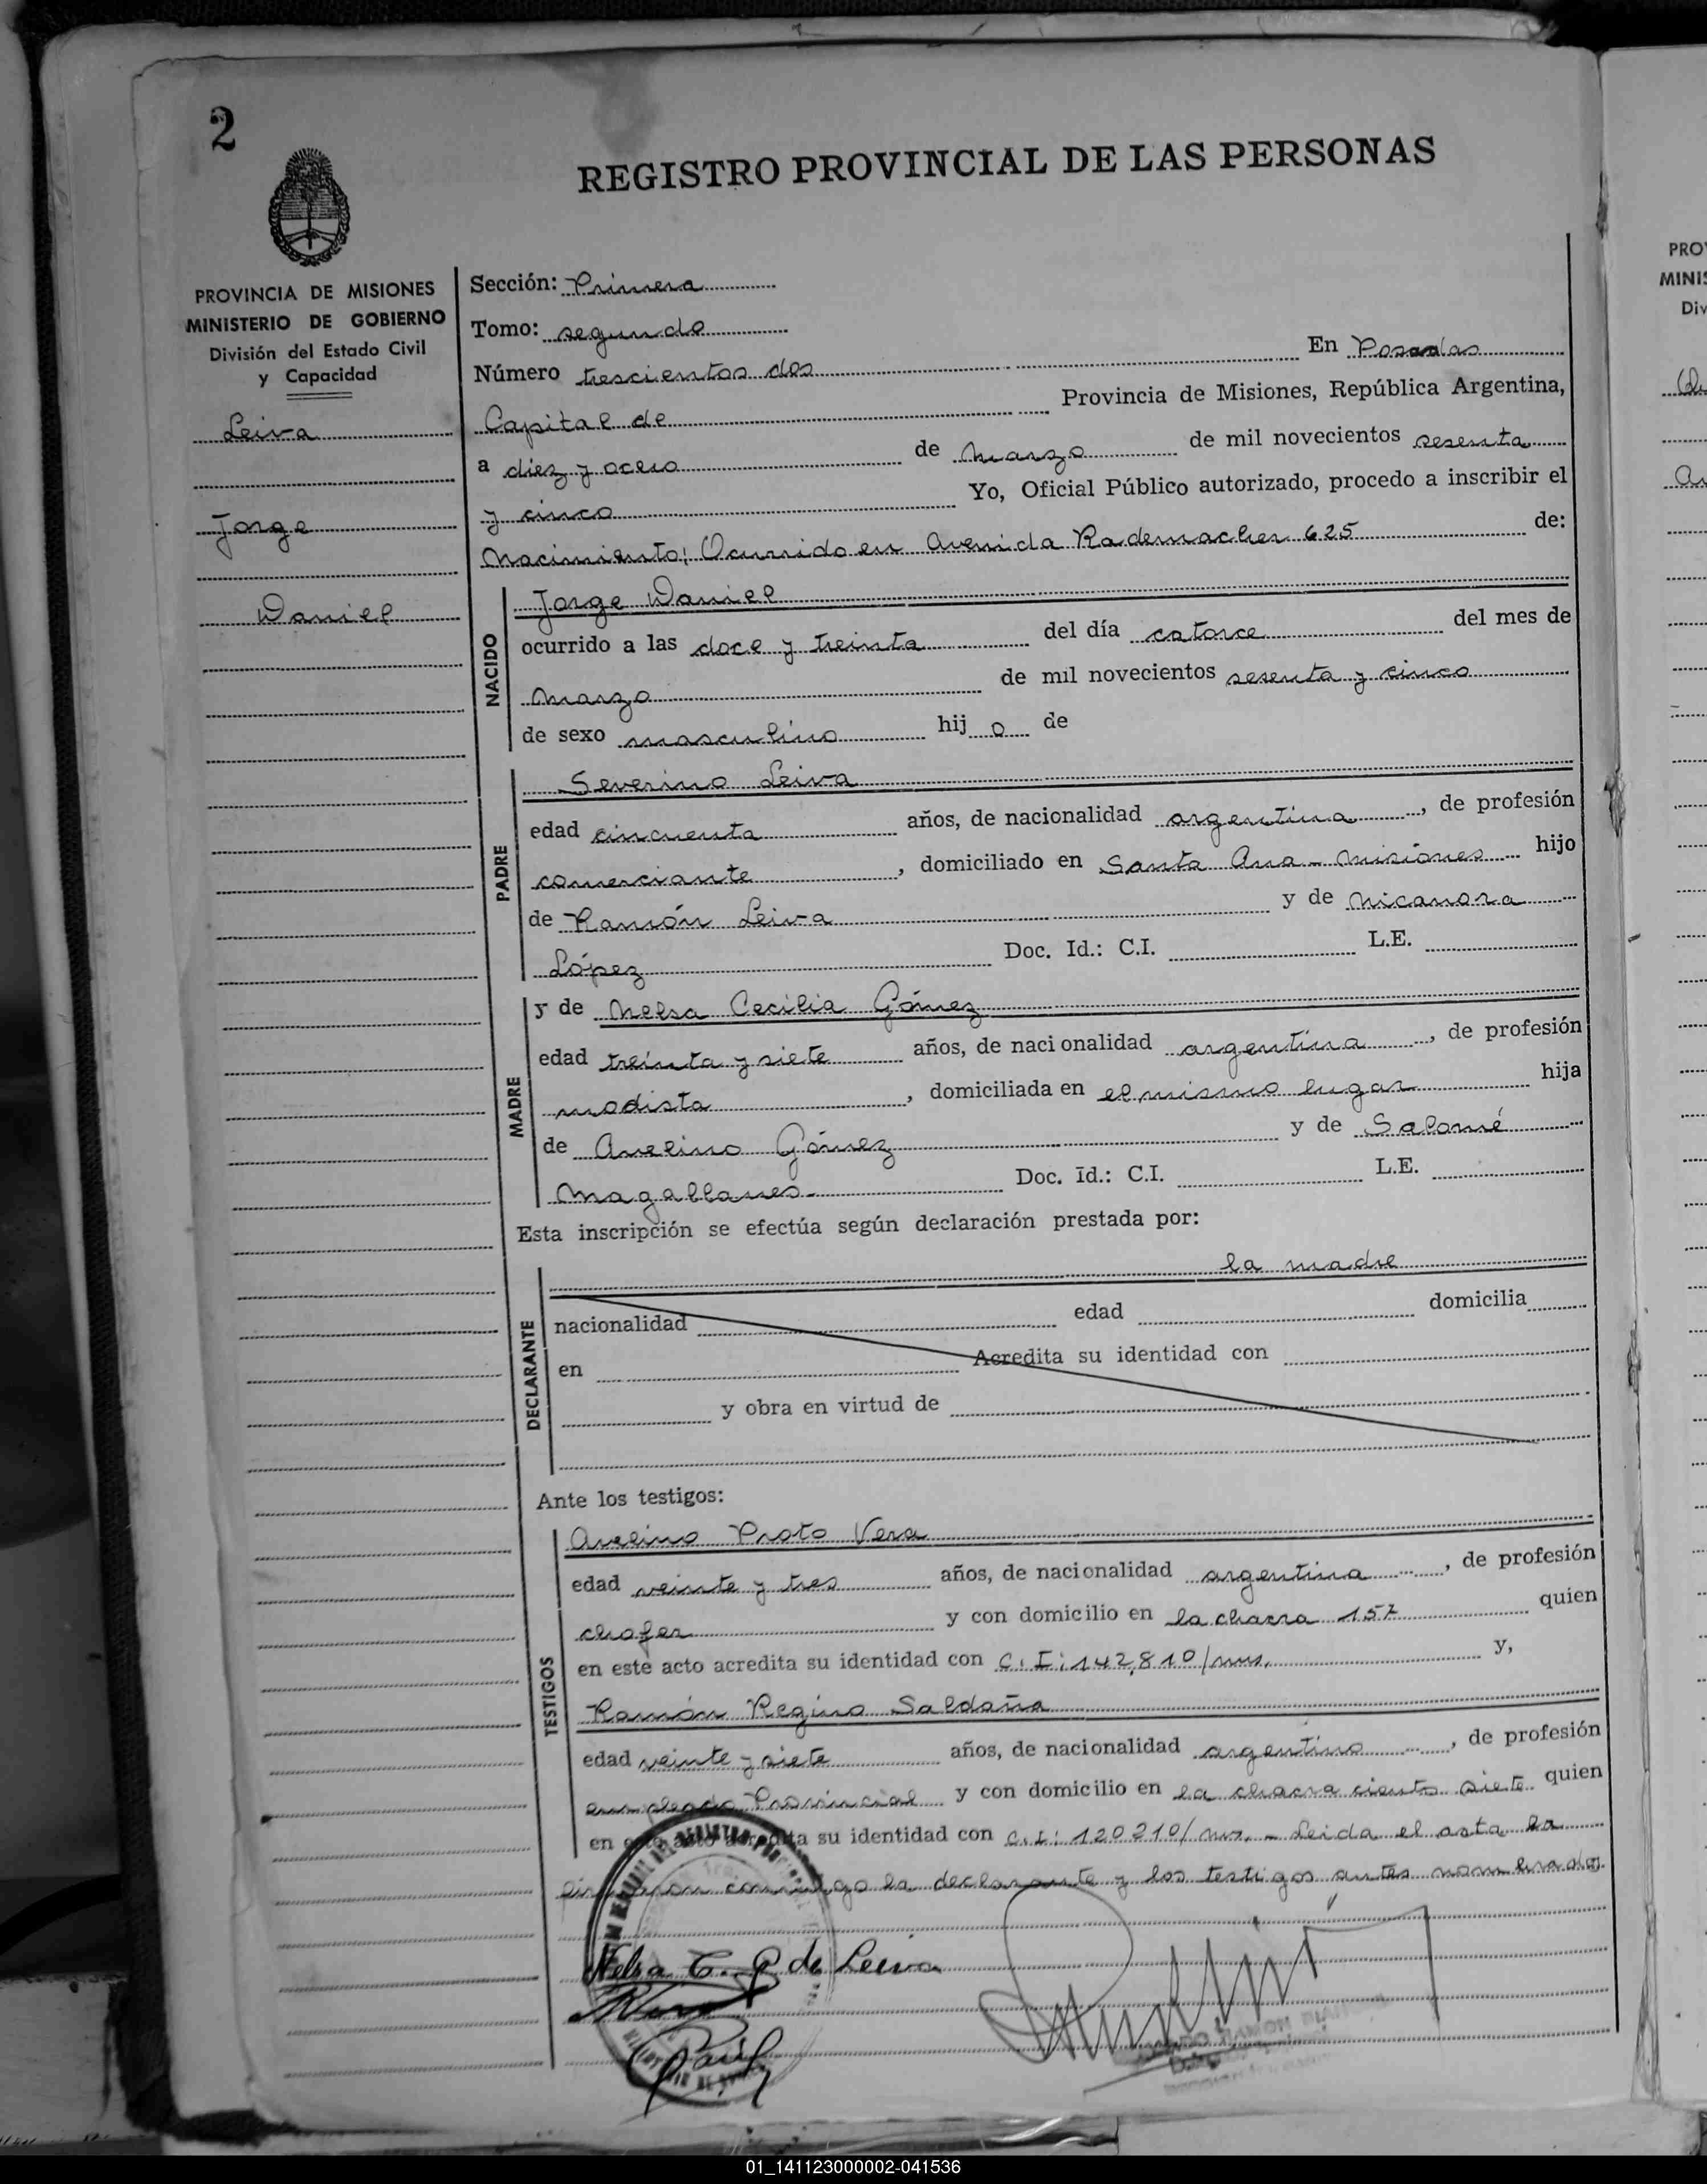 2
REGISTRO PROVINCIAL DE LAS PERSONAS
PROVINCIA DE MISIONES
MINISTERIO DE GOBIERNO
División del Estado Civil
y Capacidad
Leiva
Jorge
Daniel
Sección: Primera
Tomo: segundo
Número trescientos dos En Posadas
Capital de Provincia de Misiones, República Argentina,
a diez y ocho de marzo de mil novecientos sesenta
y cinco Yo, Oficial Público autorizado, procedo a inscribir el
Nacimiento: Ocurrido en Avenida Rademacher 625 de:
NACIDO
Jorge Daniel
ocurrido a las doce y treinta del día catorce del mes de
marzo de mil novecientos sesenta y cinco
de sexo masculino hij o de
PADRE
Severino Leiva
edad cincuenta años, de nacionalidad argentina, de profesión
comerciante, domiciliado en Santa Ana - Misiones hijo
de Ramón Leiva y de Nicanora
López Doc. Id.: C.I. L.E.
MADRE
y de Nelsa Cecilia Gómez
edad treinta y siete años, de nacionalidad argentina, de profesión
modista, domiciliada en el mismo lugar hija
de Avelino Gómez y de Salomé
Magallanes- Doc. Id.: C.I. L.E.
Esta inscripción se efectúa según declaración prestada por:
DECLARANTE
la madre
nacionalidad edad domicilia
en Acredita su identidad con
y obra en virtud de
Ante los testigos:
TESTIGOS
Avelino Proto Vera
edad veinte y tres años, de nacionalidad argentina, de profesión
chofer y con domicilio en la chacra 157 quien
en este acto acredita su identidad con C.I: 142,810/mns. y,
Ramón Regino Saldaña
edad veinte y siete años, de nacionalidad argentino, de profesión
empleado Provincial y con domicilio en la chacra ciento siete quien
en este acto acredita su identidad con C.I: 120210/ - Leida el acta la
firmaron conmigo la declarante y los testigos antes nombrados.
Nelsa C. G de Leiva
RAMON
PROV
MINIS
Div
01_141123000002-041536